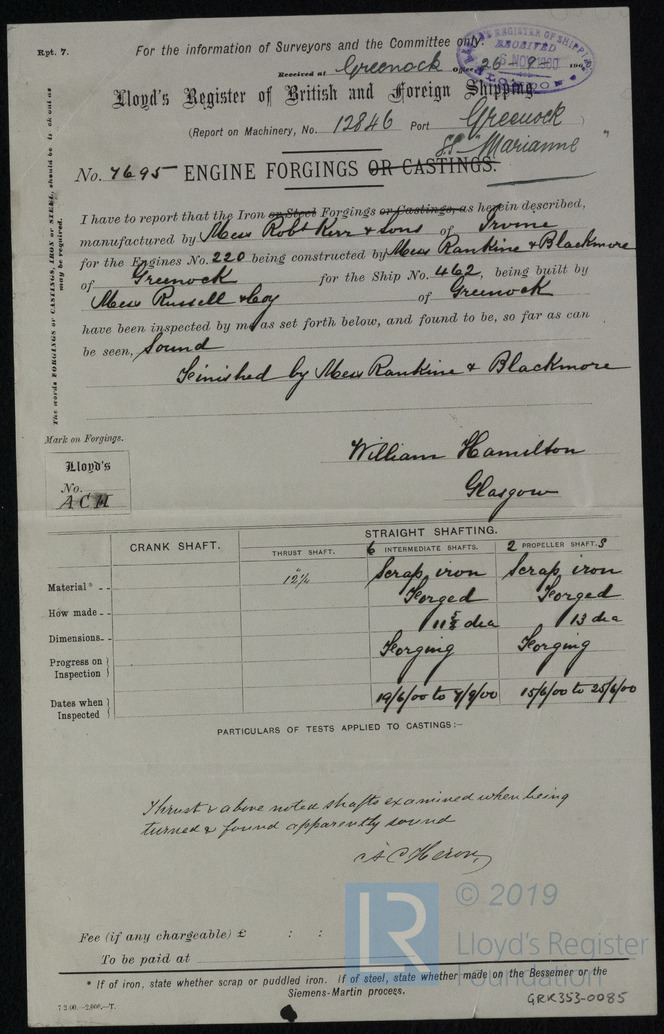 Rpt. 7.
For the information of Surveyors and the Committee only.
LLOYD'S REGISTER OF SHIPPING
RECEIVED
6 NOV 1900
LONDON
Received at Greenock Office 26-9- 190
Lloyd's Register of British and Foreign Shipping
(Report on Machinery, No. 12846 Port Greenock
S.S "Marianne"
No. 7695 ENGINE FORGINGS OR CASTINGS.
The words FORGINGS or CASTINGS, IRON or STEEL, should be struck out as
may be required.
I have to report that the Iron or Steel Forgings or Castings, as herein described,
manufactured by Mess Robt Kerr & Sons of Irvine
for the Engines No. 220 being constructed by Mess Rankine & Blackmore
of Greenock for the Ship No. 462, being built by
Mess Russell & Coy of Greenock
have been inspected by me as set forth below, and found to be, so far as can
be seen, Sound
Finished by Mess Rankine & Blackmore
Mark on Forgings.
Lloyd's
No.
ACH
William Hamilton
Glasgow
STRAIGHT SHAFTING.
CRANK SHAFT. THRUST SHAFT. 6 INTERMEDIATE SHAFTS. 2 PROPELLER SHAFT.S
Material* - - 12¼" Scrap iron Scrap iron
How made - - Forged Forged
Dimensions - - 11⅝ dia 13 dia
Progress on Inspection Forging Forging
Dates when Inspected 19/6/00 to 7/8/00 15/6/00 to 25/6/00
PARTICULARS OF TESTS APPLIED TO CASTINGS:—
Thrust & above noted shafts examined when being
turned & found apparently sound
A C Heron
Fee (if any chargeable) £ : :
To be paid at
* If of iron, state whether scrap or puddled iron. If of steel, state whether made on the Bessemer or the
Siemens-Martin process.
7.2.00.—2,000.—T.
LR
© 2019
Lloyd's Register
Foundation
GRK353-0085